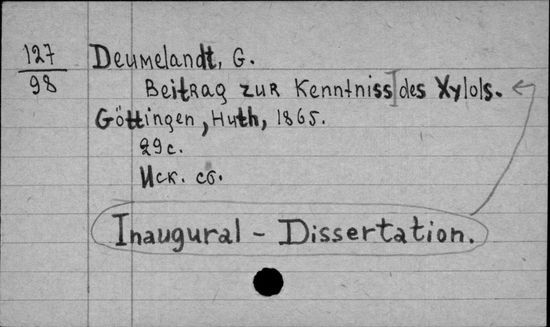 127
98
Deumelandt, G.
Beitrag zur Kenntniss] des Xylols.
Göttingen, Huth, 1865.
29 с.
Иск. сб.
Inaugural - Dissertation.